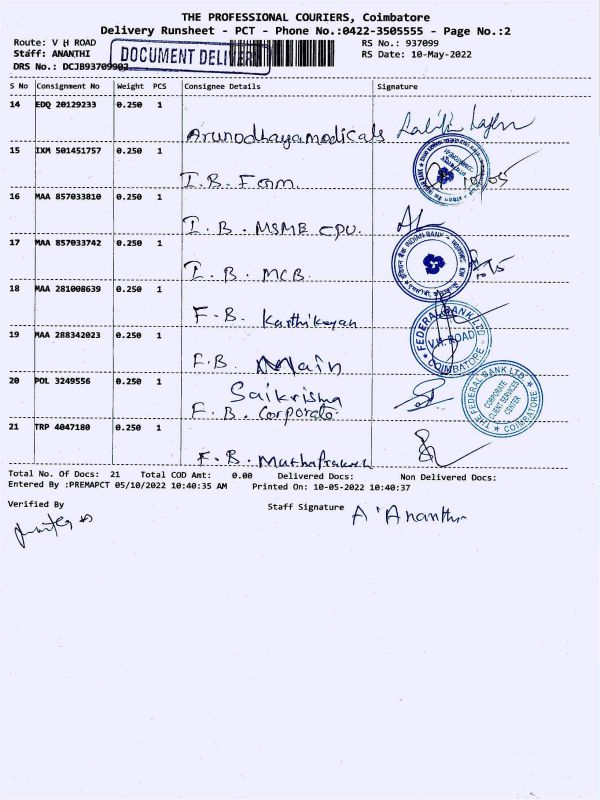 THE PROFESSIONAL COURIERS, Coimbatore
Delivery Runsheet - PCT - Phone No.:0422-3505555 - Page No.:2
Route: V H ROAD RS No.: 937099
Staff: ANANTHI DOCUMENT DELIVERY RS Date: 10-May-2022
DRS No.: DCJB93709902
S No Consignment No Weight PCS Consignee Details Signature
14 EDQ 20129233 0.250 1
Arunodhayamedicals
15 IXM 501451757 0.250 1
I.B. Form
10/05
16 MAA 857033810 0.250 1
I.B. MSME CPU.
17 MAA 857033742 0.250 1
INDIAN BANK
I.B. MCB.
18 MAA 281008639 0.250 1
F-B. Karthikeyan
FEDERAL BANK LTD
V.H. ROAD
COIMBATORE
19 MAA 288342023 0.250 1
F.B. Main
20 POL 3249556 0.250 1
Saikrishna
F.B. Corporate.
THE FEDERAL BANK LTD.
CORPORATE
CLIENT SERVICES
CENTER
COIMBATORE
21 TRP 4047180 0.250 1
F.B. Muthuprakash
Total No. Of Docs: 21 Total COD Amt: 0.00 Delivered Docs: Non Delivered Docs:
Entered By :PREMAPCT 05/10/2022 10:40:35 AM Printed On: 10-05-2022 10:40:37
Verified By Staff Signature A. Ananthi